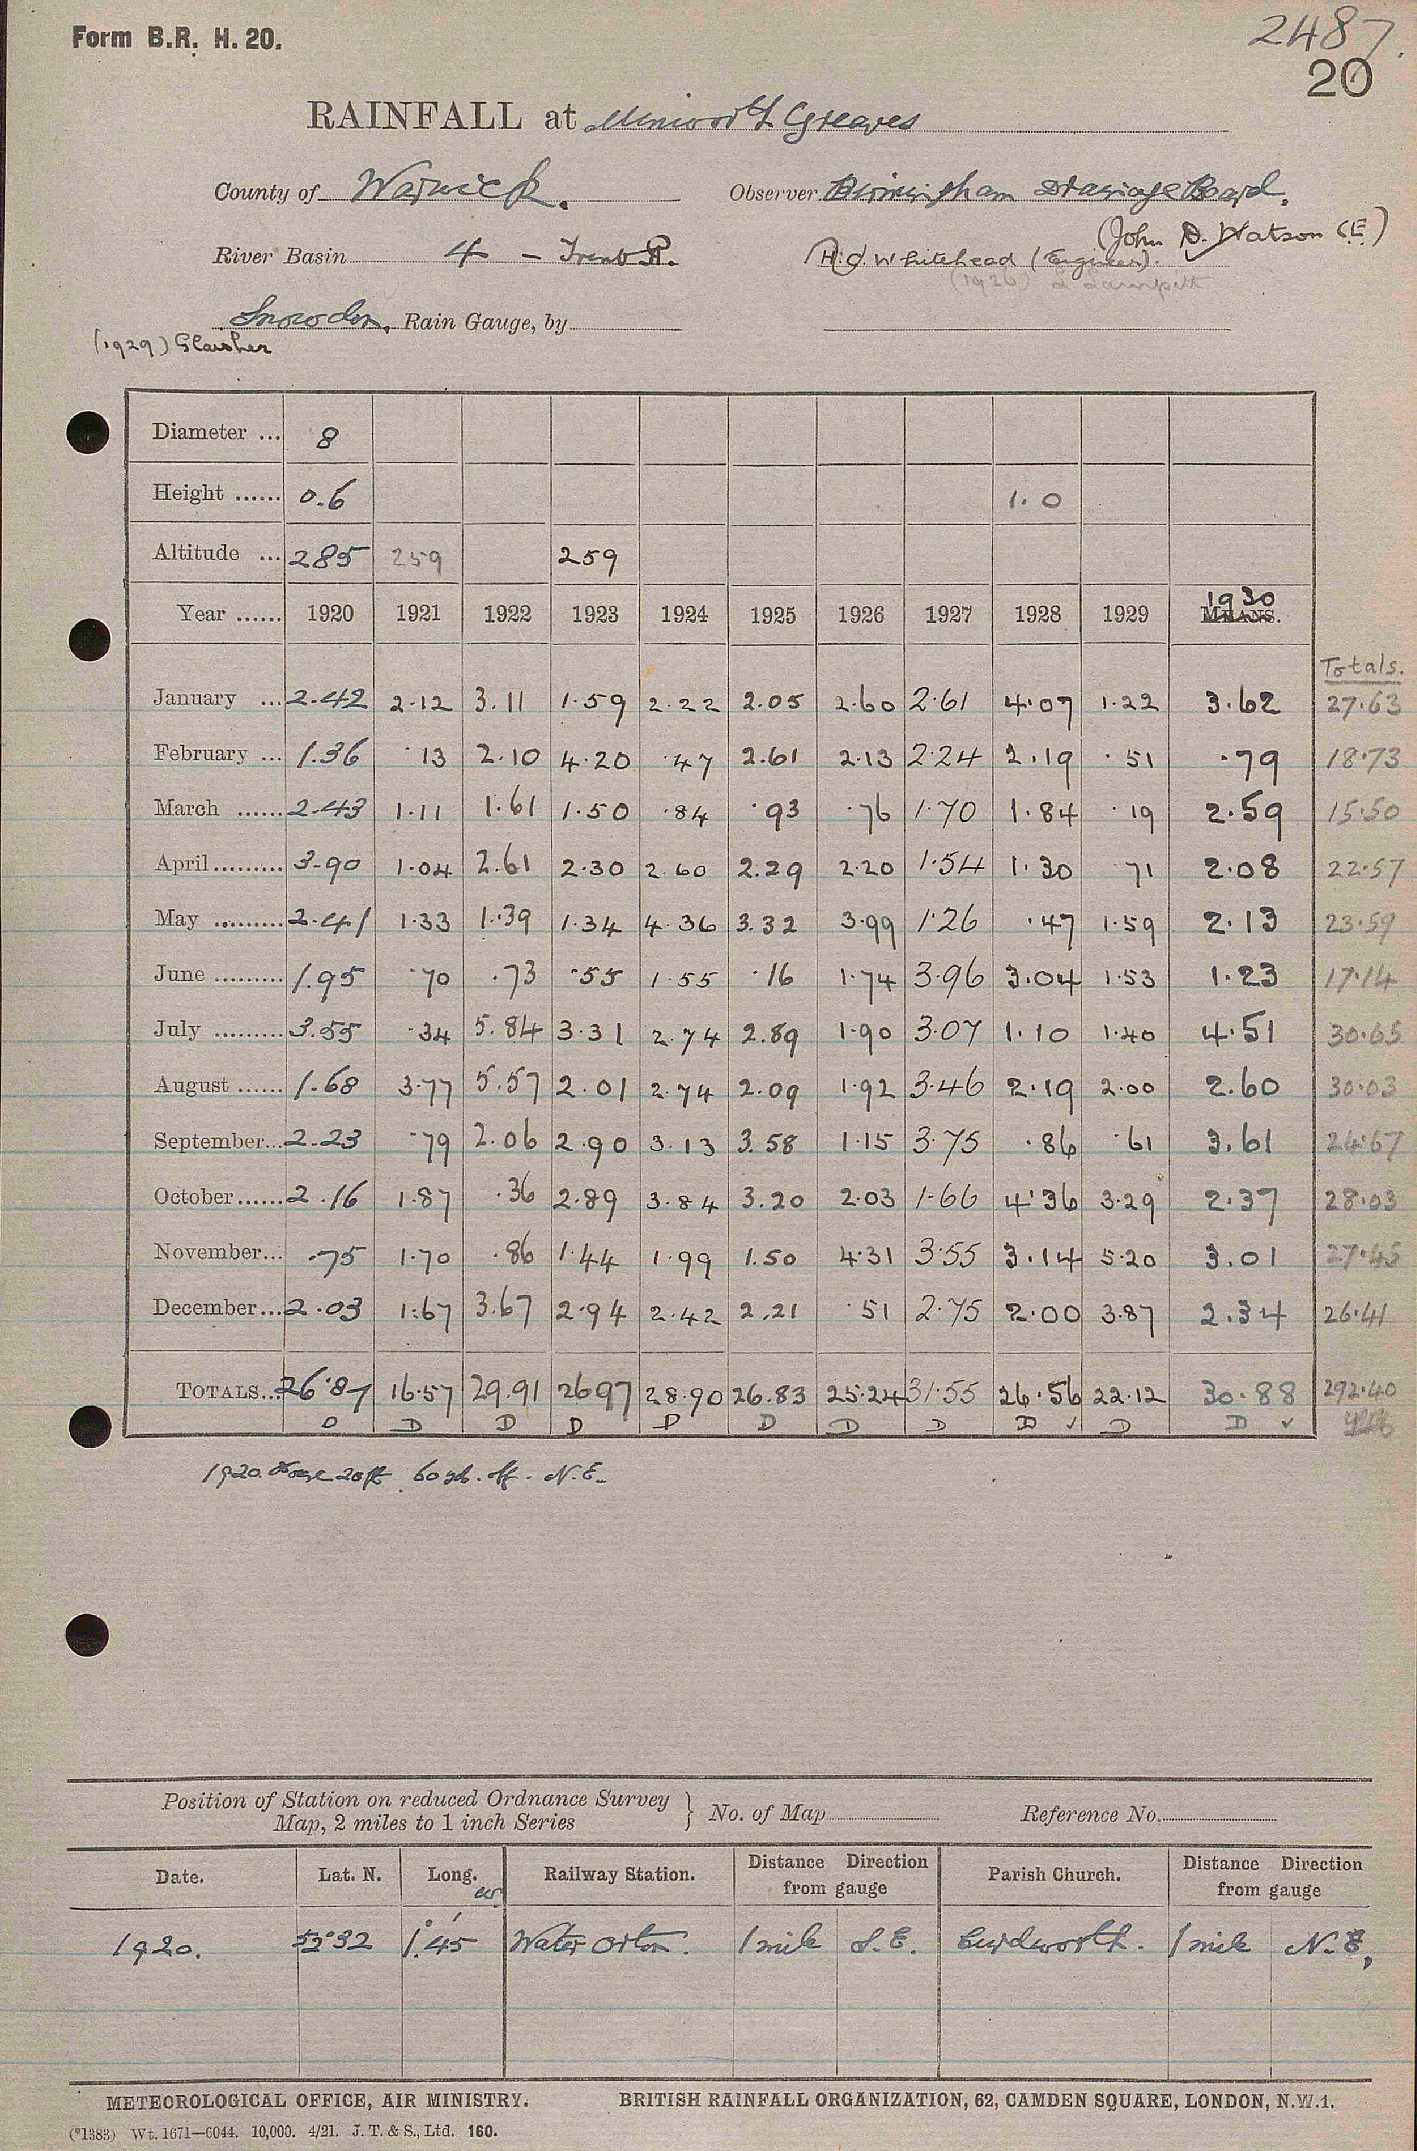 Form B.R. H. 20.
2487.
20
RAINFALL at Minworth Greaves
County of Warwick. Observer Birmingham Drainage Board.
(John D. Watson (E)
River Basin 4 - Trent R. H.C. Whitehead (Engineer).
(1926)
Snowdon. Rain Gauge, by
(1929) Glaisher
Diameter ... 8
Height ...... 0.6 1.0
Altitude ... 285 259 259
1930
Year ...... 1920 1921 1922 1923 1924 1925 1926 1927 1928 1929 MEANS.
Totals.
January ... 2.42 2.12 3.11 1.59 2.22 2.05 2.60 2.61 4.07 1.22 3.62 27.63
February ... 1.36 .13 2.10 4.20 .47 2.61 2.13 2.24 2.19 .51 .79 18.73
March ...... 2.43 1.11 1.61 1.50 .84 .93 .76 1.70 1.84 .19 2.59 15.50
April ......... 3.90 1.04 2.61 2.30 2.60 2.29 2.20 1.54 1.30 71 2.08 22.57
May ......... 2.41 1.33 1.39 1.34 4.36 3.32 3.99 1.26 .47 1.59 2.13 23.59
June ......... 1.95 .70 .73 .55 1.55 .16 1.74 3.96 3.04 1.53 1.23 17.14
July ......... 3.55 .34 5.84 3.31 2.74 2.89 1.90 3.07 1.10 1.40 4.51 30.65
August ...... 1.68 3.77 5.57 2.01 2.74 2.09 1.92 3.46 2.19 2.00 2.60 30.03
September... 2.23 .79 2.06 2.90 3.13 3.58 1.15 3.75 .86 .61 3.61 24.67
October...... 2.16 1.87 .36 2.89 3.84 3.20 2.03 1.66 4.36 3.29 2.37 28.03
November... .75 1.70 .86 1.44 1.99 1.50 4.31 3.55 3.14 5.20 3.01 27.45
December... 2.03 1.67 3.67 2.94 2.42 2.21 .51 2.75 2.00 3.87 2.34 26.41
TOTALS... 26.87 16.57 29.91 26.97 28.90 26.83 25.24 31.55 26.56 22.12 30.88 292.40
D D D D D D D D D ✓ D D ✓
1920. 20ft 60 yds. off. N.E.
Position of Station on reduced Ordnance Survey } No. of Map Reference No.
Map, 2 miles to 1 inch Series
Date. Lat. N. Long. W Railway Station. Distance Direction from gauge Parish Church. Distance Direction from gauge
1920. 52°32 1°45' Water Orton. 1 mile S.E. Curdworth. 1 mile N.E.
METEOROLOGICAL OFFICE, AIR MINISTRY. BRITISH RAINFALL ORGANIZATION, 62, CAMDEN SQUARE, LONDON, N.W.1.
(*1383) Wt. 1671—6044. 10,000. 4/21. J. T. & S., Ltd. 160.